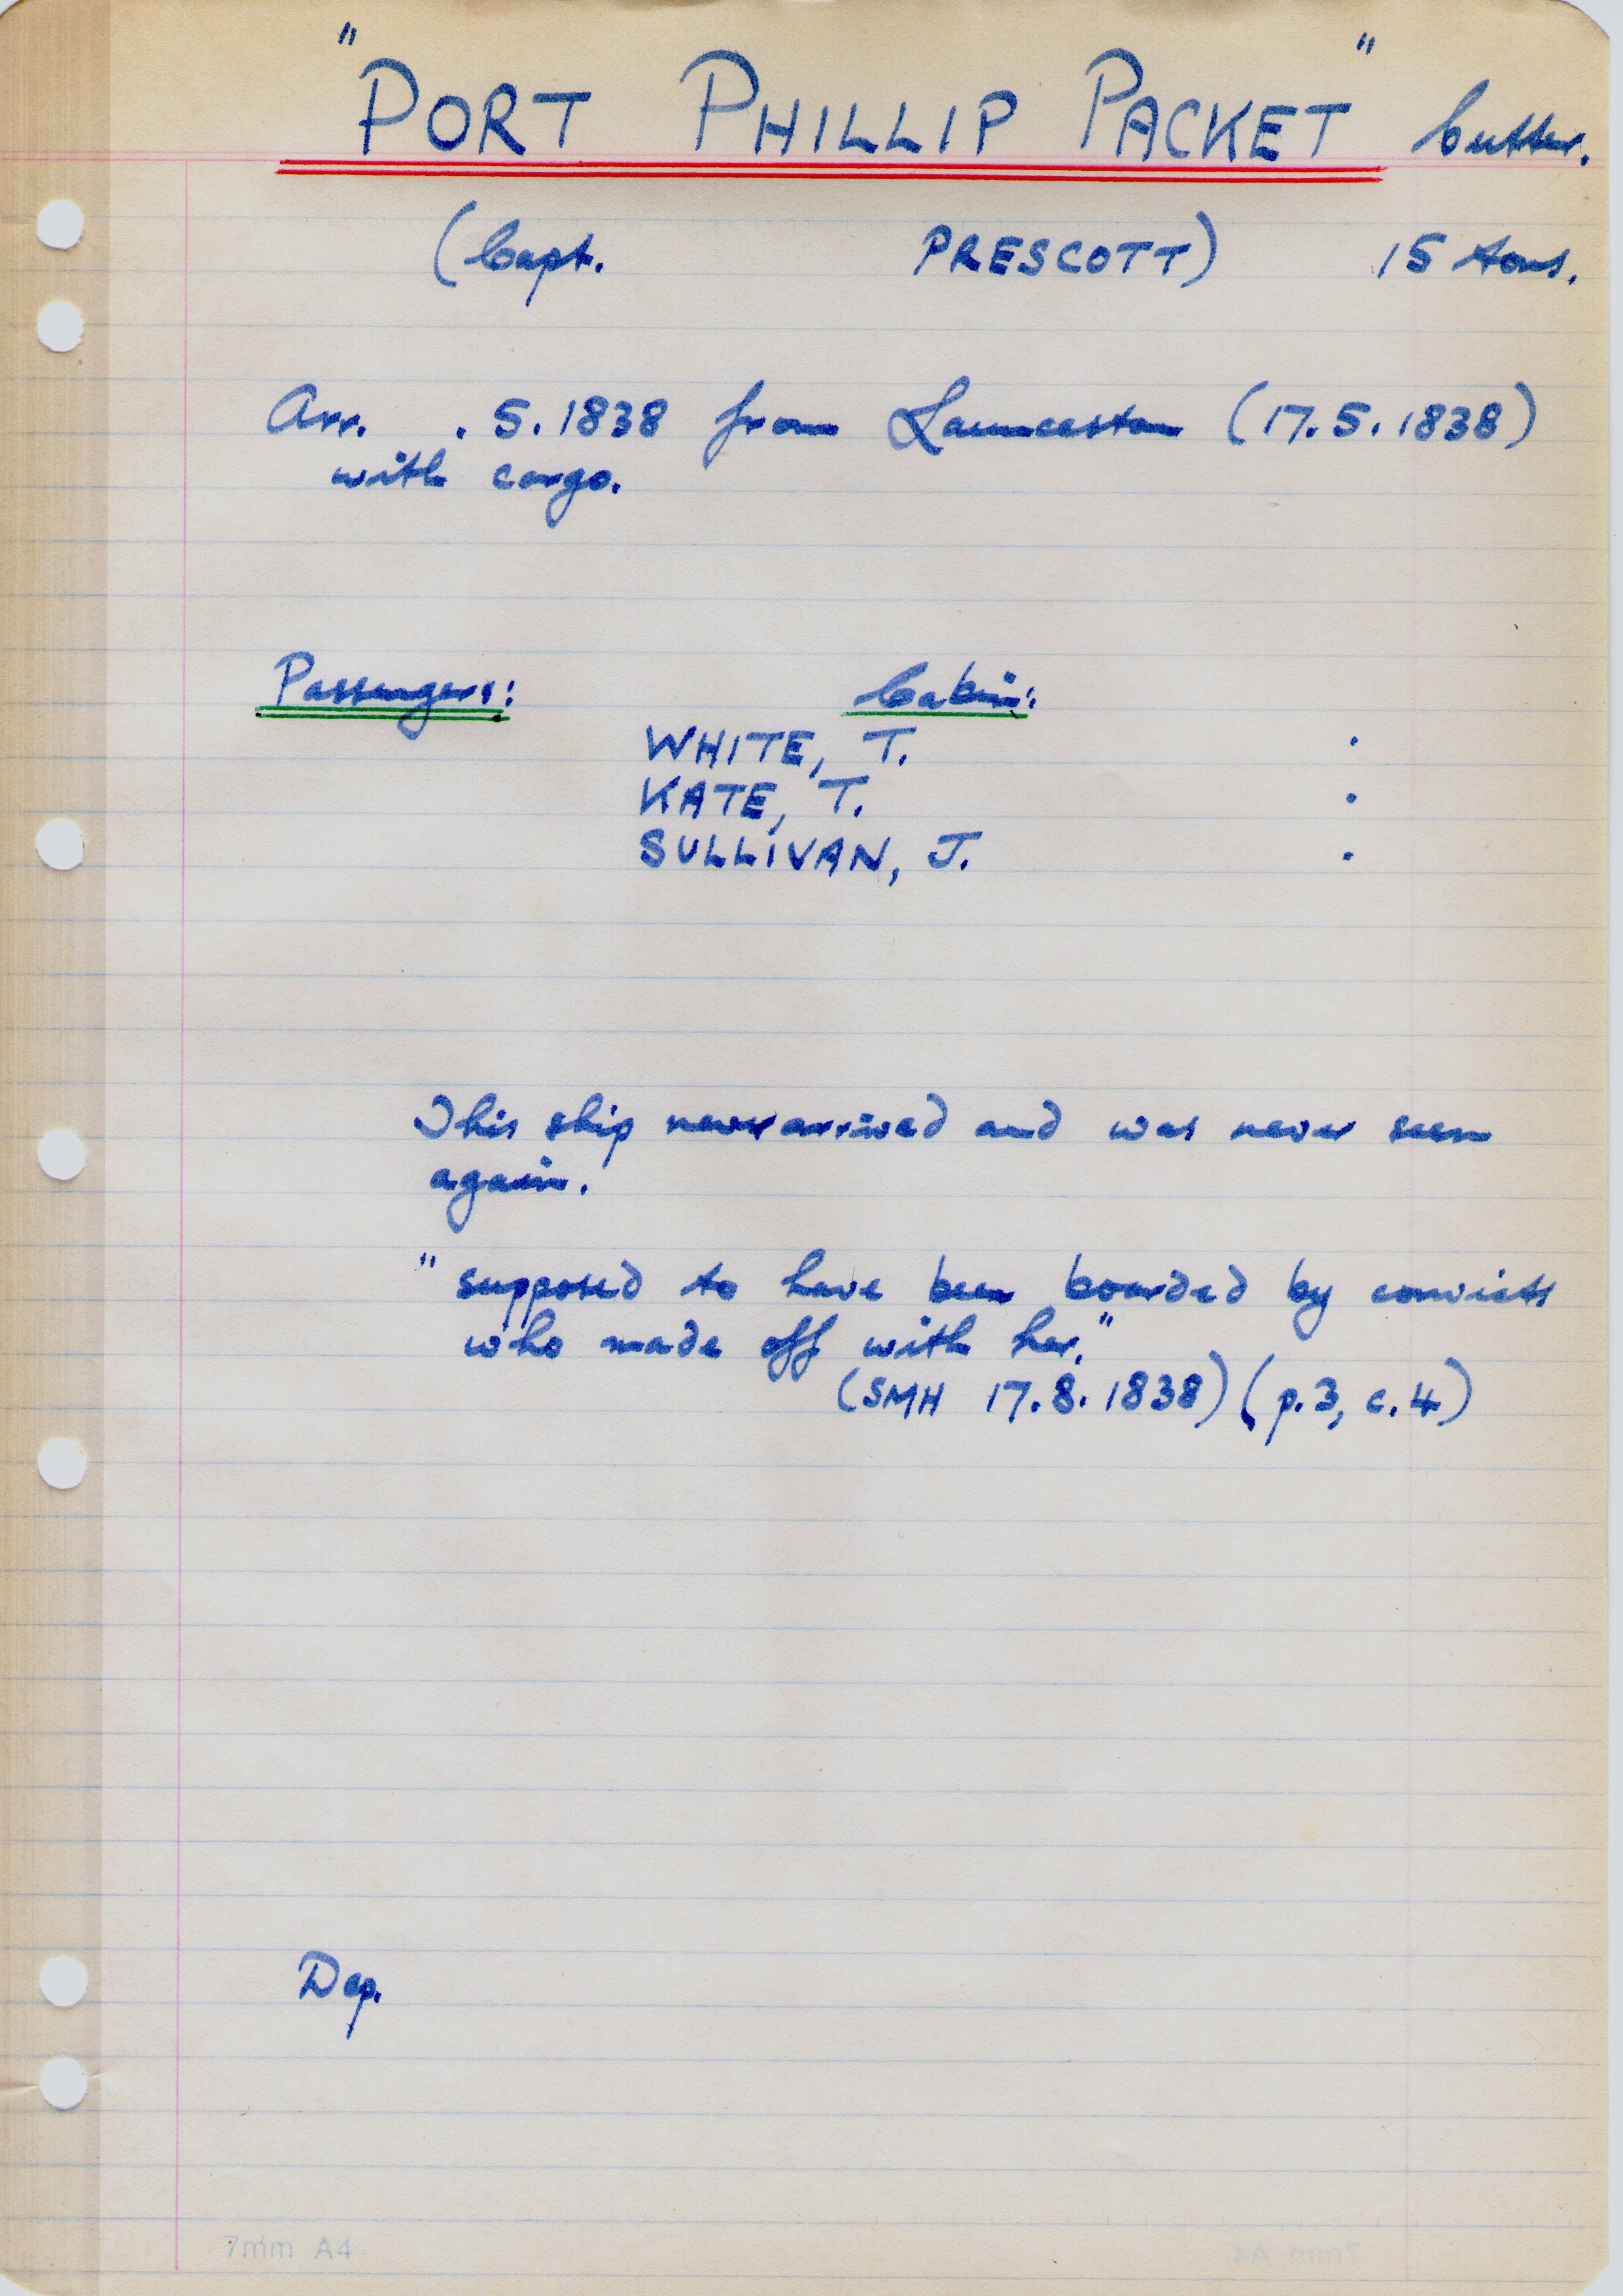 "PORT PHILLIP PACKET" Cutter.
(Capt. PRESCOTT) 15 tons.
Arr. . 5. 1838 from Launceston (17. 5. 1838)
with cargo.
Passengers: Cabin:
WHITE, T. .
KATE, T. .
SULLIVAN, J. .
This ship never arrived and was never seen
again.
"supposed to have been boarded by convicts
who made off with her."
(SMH 17. 8. 1838) (p. 3, c. 4)
Dep.
7mm A4
7mm A4